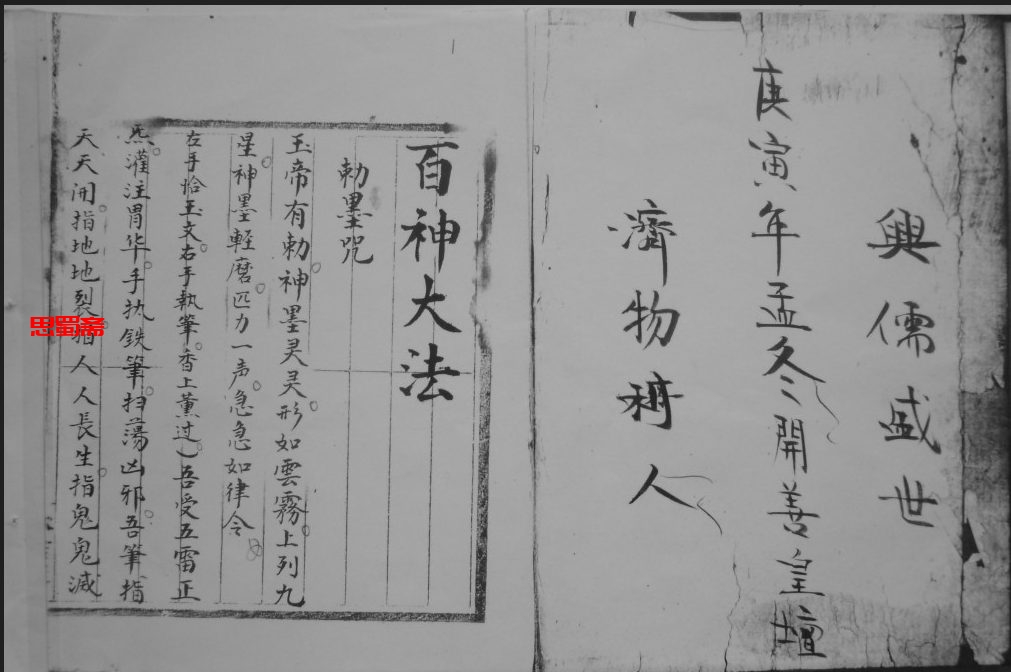 興儒盛世
庚寅年孟冬開善皇壇
濟物稱人
百神大法
勅墨咒
玉帝有勅神墨灵灵形如雲霧上列九
星神墨輕磨匹力一声急急如律令
左手恰玉文右手執筆香上薰过）吾受五雷正
炁灌注胃华手执鉄筆扫蕩凶邪吾筆指
天天開指地地裂指人人長生指鬼鬼滅
思蜀斋